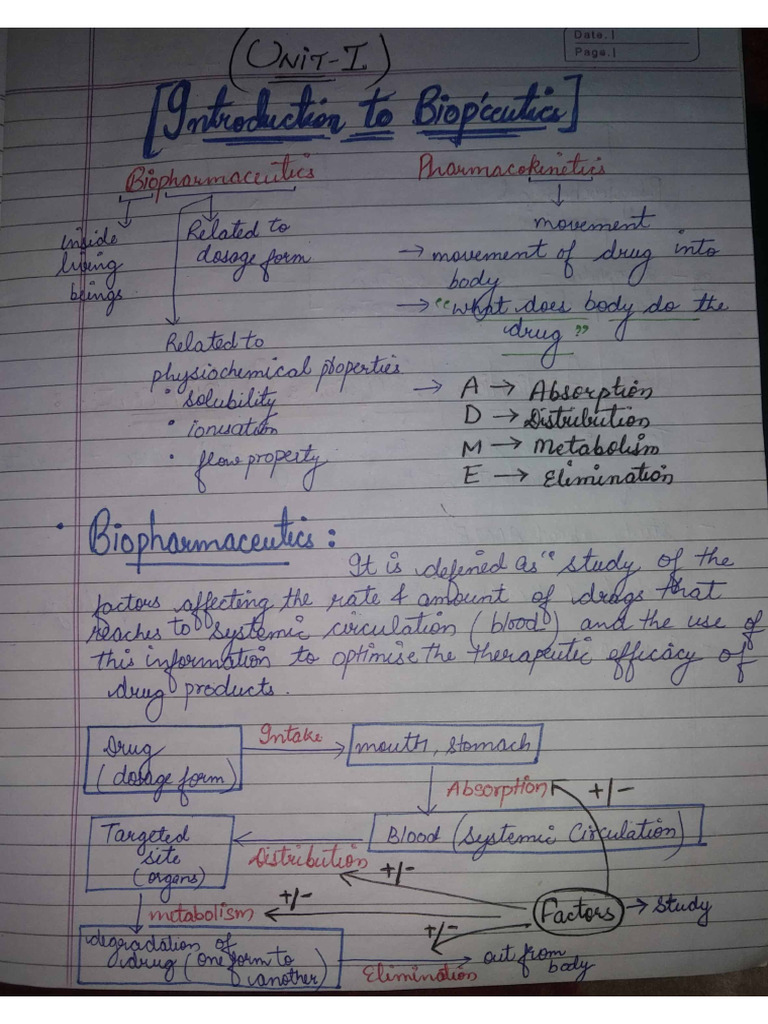 (UNIT-I)
Date.|
Page.|
[Introduction to Biop'ceutics]
Biopharmaceutics
inside
living
beings
Related to
dosage form
Related to
physiochemical properties
• solubility
• ionisation
• flow property
Pharmacokinetics
movement
→ movement of drug into
body
→ "what does body do the
drug"
→ A → Absorption
D → Distribution
M → Metabolism
E → Elimination
• Biopharmaceutics:
It is defined as "study of the
factors affecting the rate & amount of drugs that
reaches to systemic circulation (blood) and the use of
this information to optimise the therapeutic efficacy of
drug products.
Drug
(dosage form)
Intake
mouth, stomach
Absorption
+/-
Blood (Systemic Circulation)
Distribution
+/-
Targeted
site
(organs)
metabolism
+/-
Factors → study
+/-
degradation of
drug (one form to
another)
Elimination
out from
body